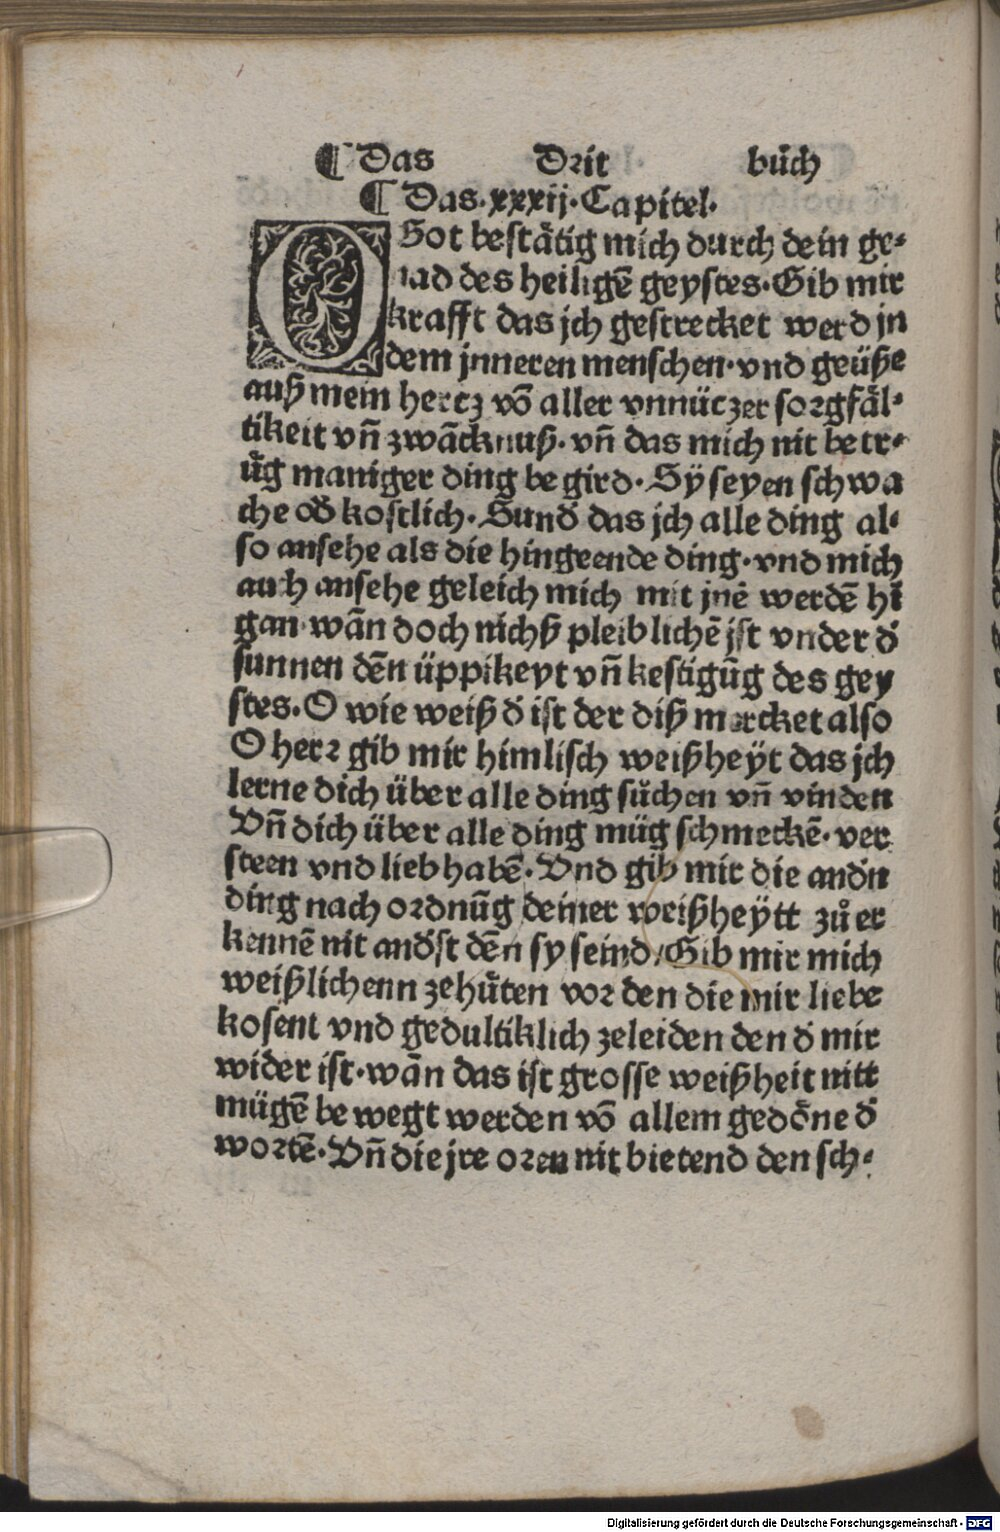 ¶ Das Drit bůch
¶ Das·xxxij·Capitel·
O Got bestätig mich durch dein ge⸗
nad des heiligē geystes·Gib mir
krafft das jch gestrecket werd jn
dem jnneren menschen·vnd geüße
auß mein hertz vō aller vnnüczer sorgfäl⸗
tikeit vn̄ zwācknuß·vn̄ das mich nit betr⸗
üg maniger ding be gird·Sÿ seyen schwa
che od̓ kostlich·Sund̓ das jch alle ding al⸗
so ansehe als die hingeende ding·vnd mich
auch ansehe geleich mich mit jnē werdē hī
gan·wān doch nichß pleiblichē jst vnder d̓
sunnen dēn üppikeyt vn̄ kestigūg des gey
stes·O wie weiß d̓ ist der diß mercket also
O herr gib mir himlisch weißheÿt das jch
lerne dich über alle ding sůchen vn̄ vinden
Vn̄ dich über alle ding müg schmeckē·ver
steen vnd lieb habē·Vnd gib mir die and̓n
ding nach ordnūg deiner weißheÿtt zů er
kennē nit and̓st dēn sy seind/Gib mir mich
weißlichenn zehůten vor den die mir liebe
kosent vnd gedultiklich zeleiden den d̓ mir
wider ist·wān das ist grosse weißheit nitt
mügē be wegt werden vō allem gedöne d̓
wortē·Vn̄ die jre oren nit bietend den sch⸗
Digitalisierung gefördert durch die Deutsche Forschungsgemeinschaft - DFG